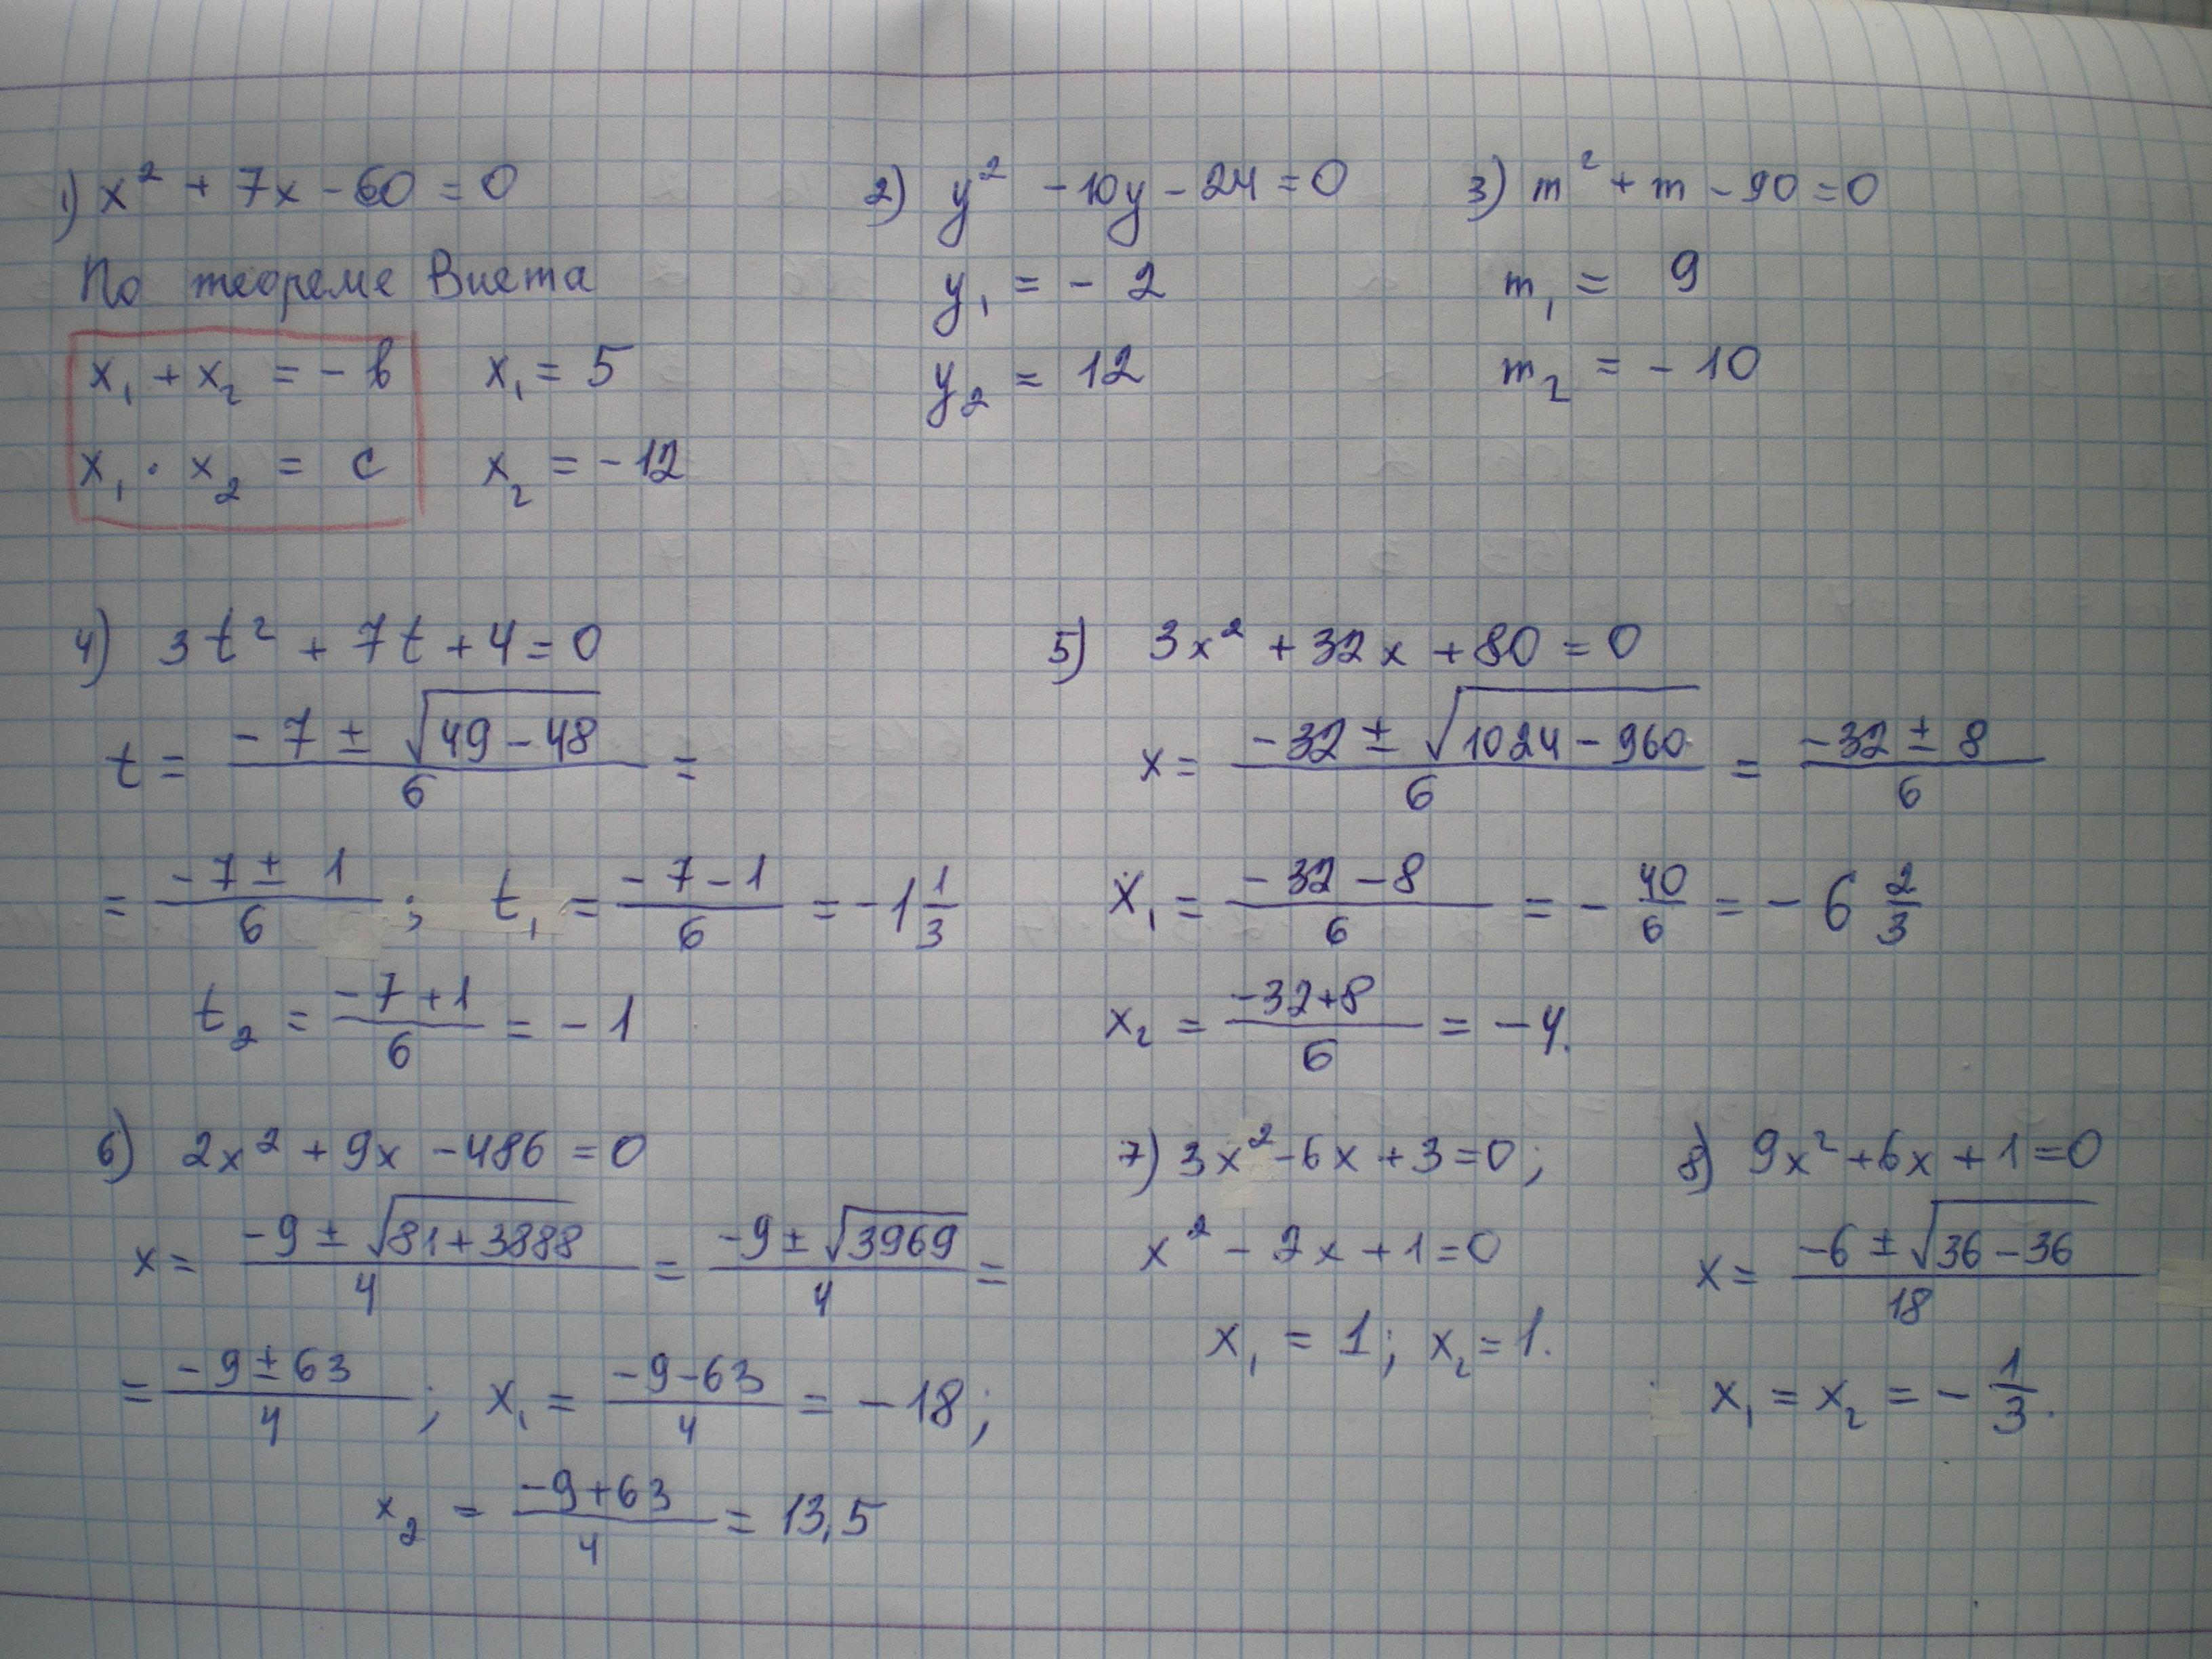 1) x² + 7x - 60 = 0
По теореме Виета
x₁ + x₂ = - b
x₁ · x₂ = c
x₁ = 5
x₂ = -12
2) y² - 10y - 24 = 0
y₁ = - 2
y₂ = 12
3) m² + m - 90 = 0
m₁ = 9
m₂ = - 10
4) 3t² + 7t + 4 = 0
t = (-7 ± √(49 - 48))/6 =
= (-7 ± 1)/6 ; t₁ = (-7 - 1)/6 = -1 1/3
t₂ = (-7 + 1)/6 = - 1
5) 3x² + 32x + 80 = 0
x = (-32 ± √(1024 - 960))/6 = (-32 ± 8)/6
x₁ = (-32 - 8)/6 = - 40/6 = - 6 2/3
x₂ = (-32 + 8)/6 = -4.
6) 2x² + 9x - 486 = 0
x = (-9 ± √(81 + 3888))/4 = (-9 ± √3969)/4 =
= (-9 ± 63)/4 ; x₁ = (-9 - 63)/4 = - 18 ;
x₂ = (-9 + 63)/4 = 13,5
7) 3x² - 6x + 3 = 0 ;
x² - 2x + 1 = 0
x₁ = 1 ; x₂ = 1.
8) 9x² + 6x + 1 = 0
x = (-6 ± √(36 - 36))/18
x₁ = x₂ = - 1/3.